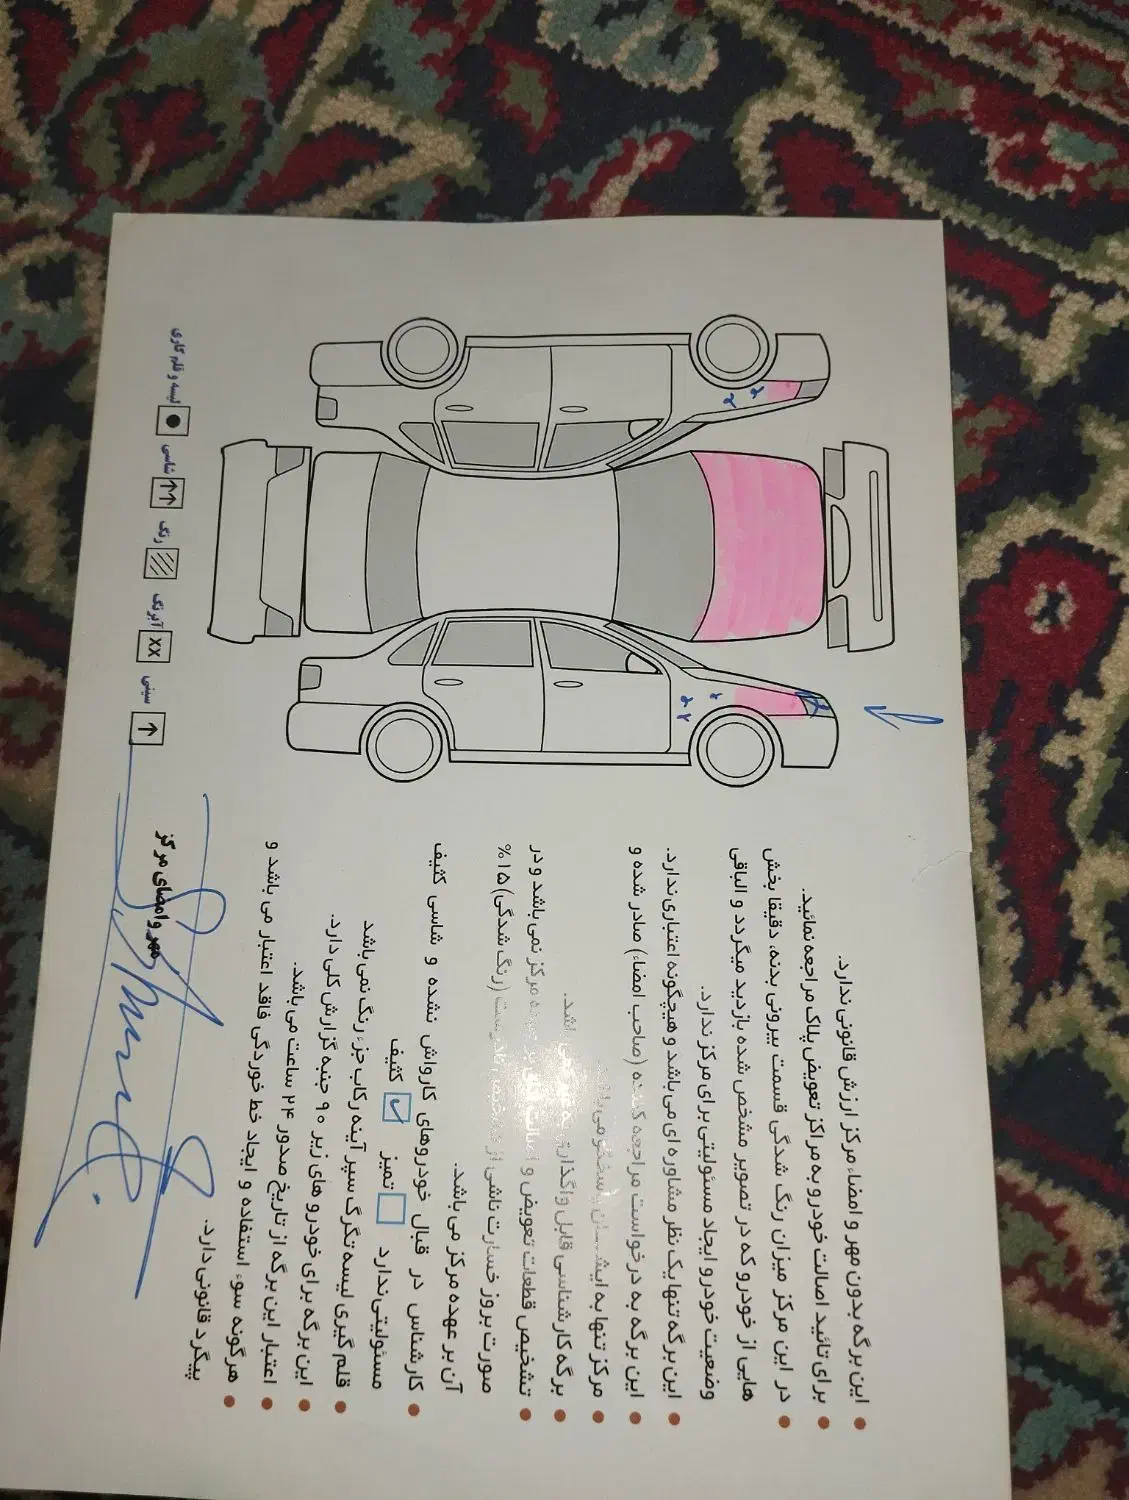 لیسه و قلم گاری
شاسی
رنگ
آبرنگ
XX
سینی
این برگه بدون مهر و امضاء مرکز ارزش قانونی ندارد.
برای تائید اصالت خودرو به مراکز تعویض پلاک مراجعه نمائید.
در این مرکز میزان رنگ شدگی قسمت بیرونی بدنه، دقیقا بخش
هایی از خودرو که در تصویر مشخص شده بازدید میگردد و الباقی
وضعیت خودرو ایجاد مسئولیتی برای مرکز ندارد.
این برگه تنها یک نظر مشاوره ای می باشد و هیچگونه اعتباری ندارد.
این برگه به درخواست مراجعه کننده (صاحب امضاء) صادر شده و
مرکز تنها به ایشان پاسخگو می باشد.
برگه کارشناسی قابل واگذاری به غیر نمی باشد.
تشخیص قطعات تعویض و اصالت مرکز نمی باشد و در
صورت بروز خسارت ناشی از (رنگ شدگی) ۱۵%
آن بر عهده مرکز می باشد.
کارشناس در قبال خودروهای کارواش نشده و شاسی کثیف
مسئولیتی ندارد تمیز کثیف
قلم گیری لیسه تگرگ سپر آینه رکاب جزء رنگ نمی باشد
این برگه برای خودرو های زیر ۹۰ جنبه گزارش کلی دارد.
اعتبار این برگه از تاریخ صدور ۲۴ ساعت می باشد.
هرگونه سوء استفاده و ایجاد خط خوردگی فاقد اعتبار می باشد و
پیگرد قانونی دارد.
مهر و امضای مرکز